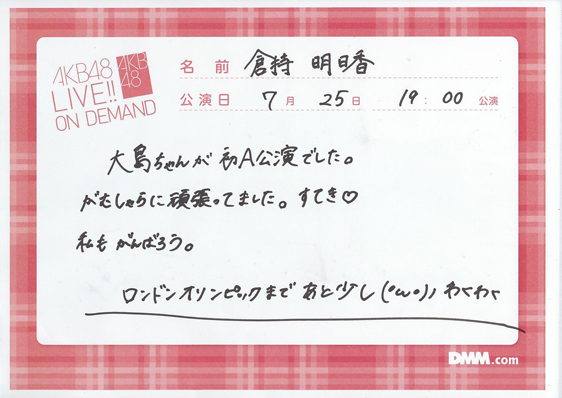 AKB48
LIVE!!
ON DEMAND
AKB
48
名前 倉持 明日香
公演日 7月 25日 19:00 公演
大島ちゃんが 初A公演でした。
がむしゃらに頑張ってました。すてき♡
私も がんばろう。
ロンドンオリンピックまで あと少し(°ω°)ﾉ わくわく
DMM.com